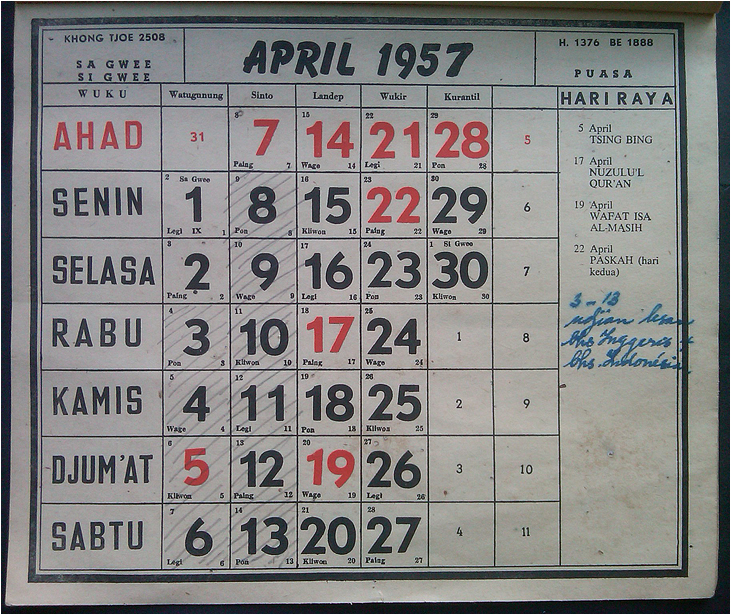 KHONG TJOE 2508
SA GWEE
SI GWEE
APRIL 1957
H. 1376 BE 1888
PUASA
WUKU Watugunung Sinto Landep Wukir Kurantil HARI RAYA
AHAD 31 7 14 21 28 5
8 15 22 29
Paing 7 Wage 14 Legi 21 Pon 28
2 Sa Gwee 9 16 23 30
SENIN 1 8 15 22 29 6
Legi IX 1 Pon 8 Kliwon 15 Paing 22 Wage 29
3 10 17 24 1 Si Gwee
SELASA 2 9 16 23 30 7
Paing 2 Wage 9 Legi 16 Pon 23 Kliwon 30
4 11 18 25
RABU 3 10 17 24 1 8
Pon 3 Kliwon 10 Paing 17 Wage 24
5 12 19 26
KAMIS 4 11 18 25 2 9
Wage 4 Legi 11 Pon 18 Kliwon 25
6 13 20 27
DJUM'AT 5 12 19 26 3 10
Kliwon 5 Paing 12 Wage 19 Legi 26
7 14 21 28
SABTU 6 13 20 27 4 11
Legi 6 Pon 13 Kliwon 20 Paing 27
5 April
TSING BING
17 April
NUZULU'L
QUR'AN
19 April
WAFAT ISA
AL-MASIH
22 April
PASKAH (hari
kedua)
3-13
udjian lesan
bhs Inggeris
bhs Indonésia